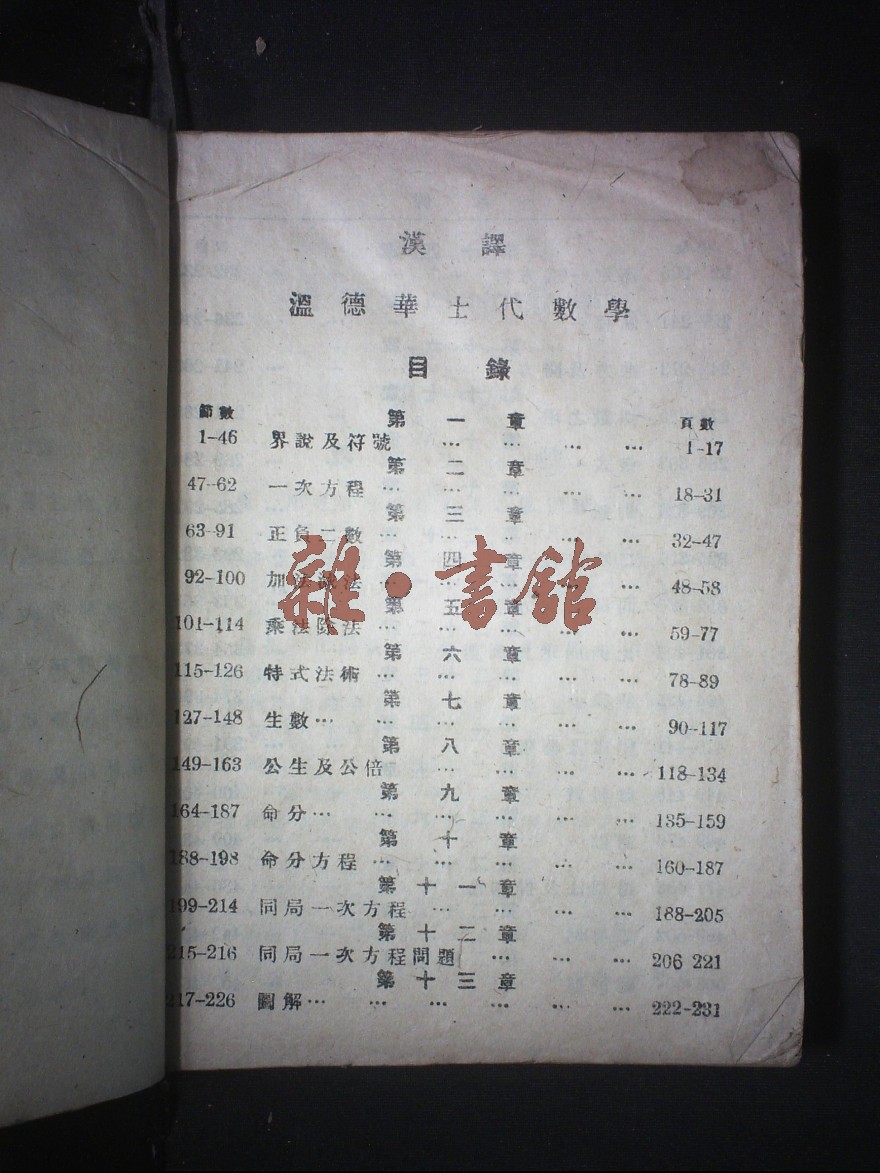 漢譯
溫德華士代數學
目錄
節數 第一章 頁數
1-46 界說及符號 … … … … 1-17
第二章
47-62 一次方程 … … … … 18-31
第三章
63-91 正負二數 … … … … 32-47
第四章
92-100 加法減法 … … … … 48-58
第五章
101-114 乘法除法 … … … … 59-77
第六章
115-126 特式法術 … … … … 78-89
第七章
127-148 生數 … … … … … 90-117
第八章
149-163 公生及公倍 … … … … 118-134
第九章
164-187 命分 … … … … … 135-159
第十章
188-198 命分方程 … … … … … 160-187
第十一章
199-214 同局一次方程 … … … … 188-205
第十二章
215-216 同局一次方程問題 … … … 206 221
第十三章
217-226 圖解 … … … … … 222-231
雜·書館